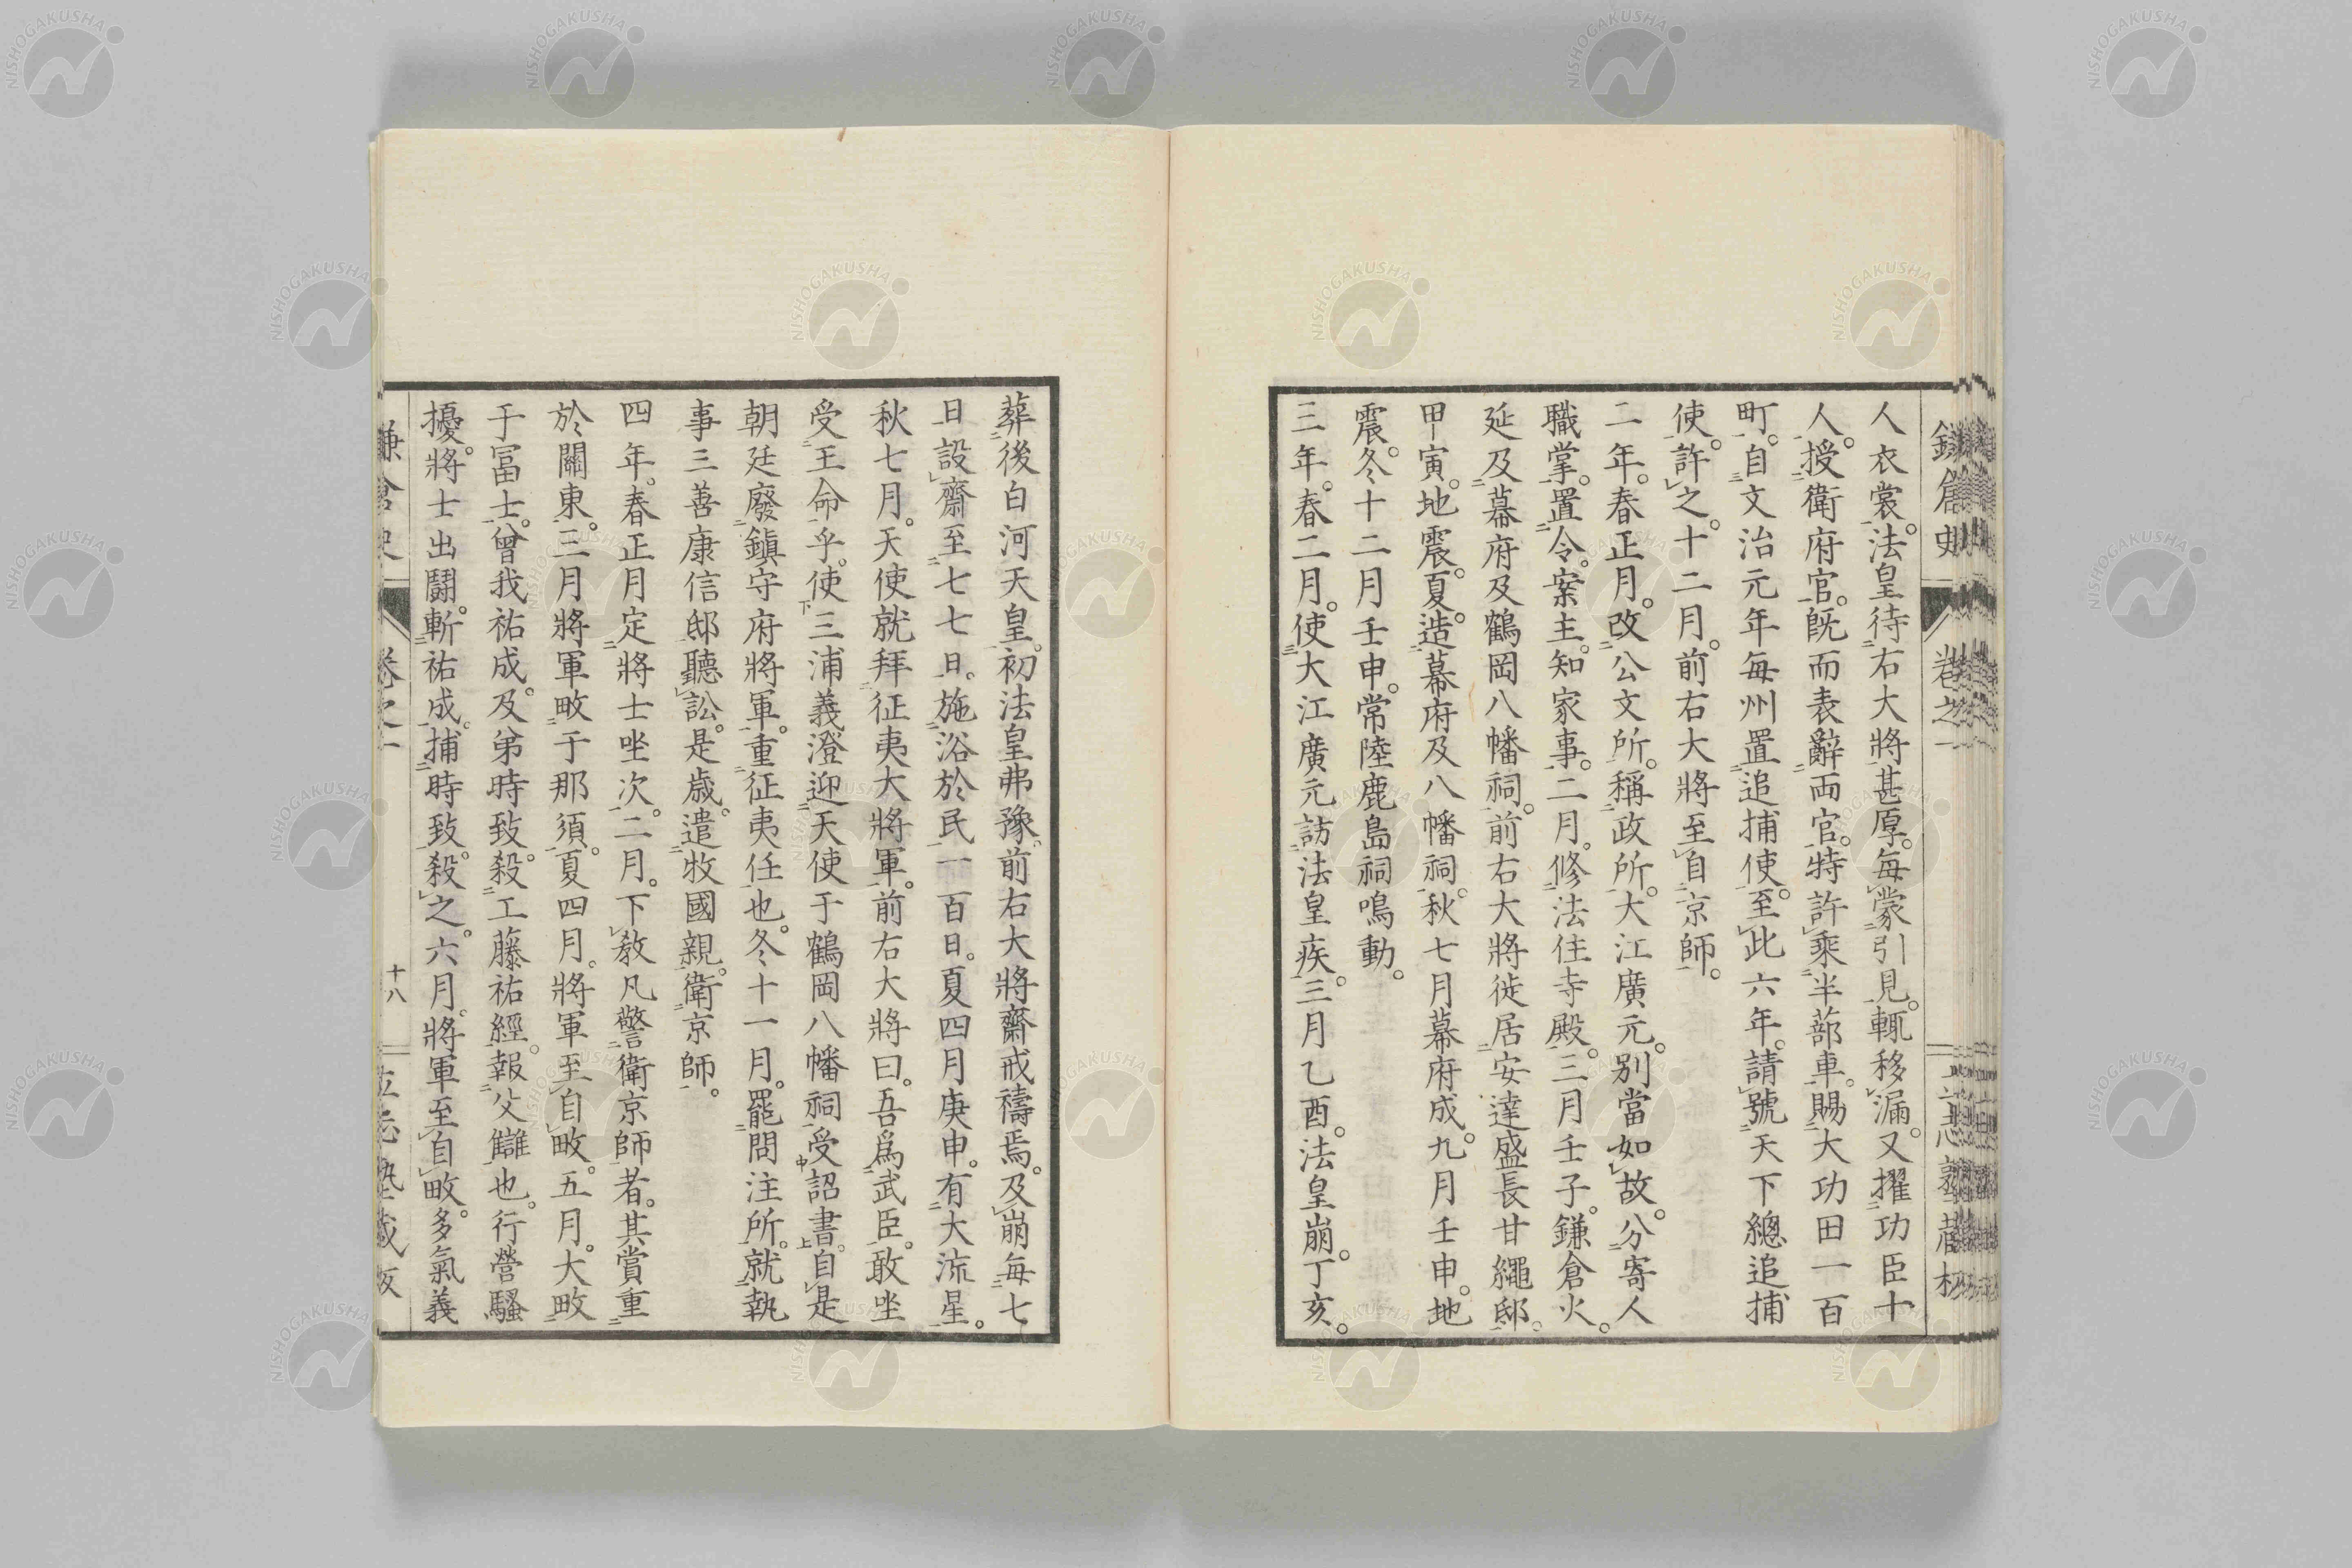 鎌倉史 卷之一 立志塾藏板
人衣裳。法皇待右大將甚厚。每蒙引見。輒移漏。又擢功臣十
人。授衛府官。既而表辭兩官。特許乘半蔀車。賜大功田一百
町。自文治元年每州置追捕使。至此六年。請號天下總追捕
使。許之。十二月。前右大將至自京師。
二年。春正月。改公文所。稱政所。大江廣元。別當如故。分寄人
職掌。置令。案主。知家事。二月。修法住寺殿。三月壬子。鎌倉火。
延及幕府及鶴岡八幡祠。前右大將徙居安達盛長甘繩邸。
甲寅。地震。夏。造幕府及八幡祠。秋七月幕府成。九月壬申。地
震。冬十二月壬申。常陸鹿島祠鳴動。
三年。春二月。使大江廣元訪法皇疾。三月乙酉。法皇崩。丁亥。
葬後白河天皇。初法皇弗豫。前右大將齋戒禱焉。及崩每七
日設齋至七七日。施浴於民一百日。夏四月庚申。有大流星。
秋七月。天使就拜征夷大將軍。前右大將曰。吾爲武臣。敢坐
受王命乎。使三浦義澄迎天使于鶴岡八幡祠受詔書。自是
朝廷廢鎭守府將軍。重征夷任也。冬十一月。罷問注所。就執
事三善康信邸聽訟。是歲。遣牧國親。衛京師。
四年。春正月定將士坐次。二月。下教凡警衛京師者。其賞重
於關東。三月將軍畋于那須。夏四月。將軍至自畋。五月。大畋
于富士。曾我祐成。及弟時致。殺工藤祐經。報父讎也。行營騷
擾。將士出鬪。斬祐成。捕時致。殺之。六月。將軍至自畋。多氣義
鎌倉史 卷之一 十八 立志塾藏板
NISHOGAKUSHA